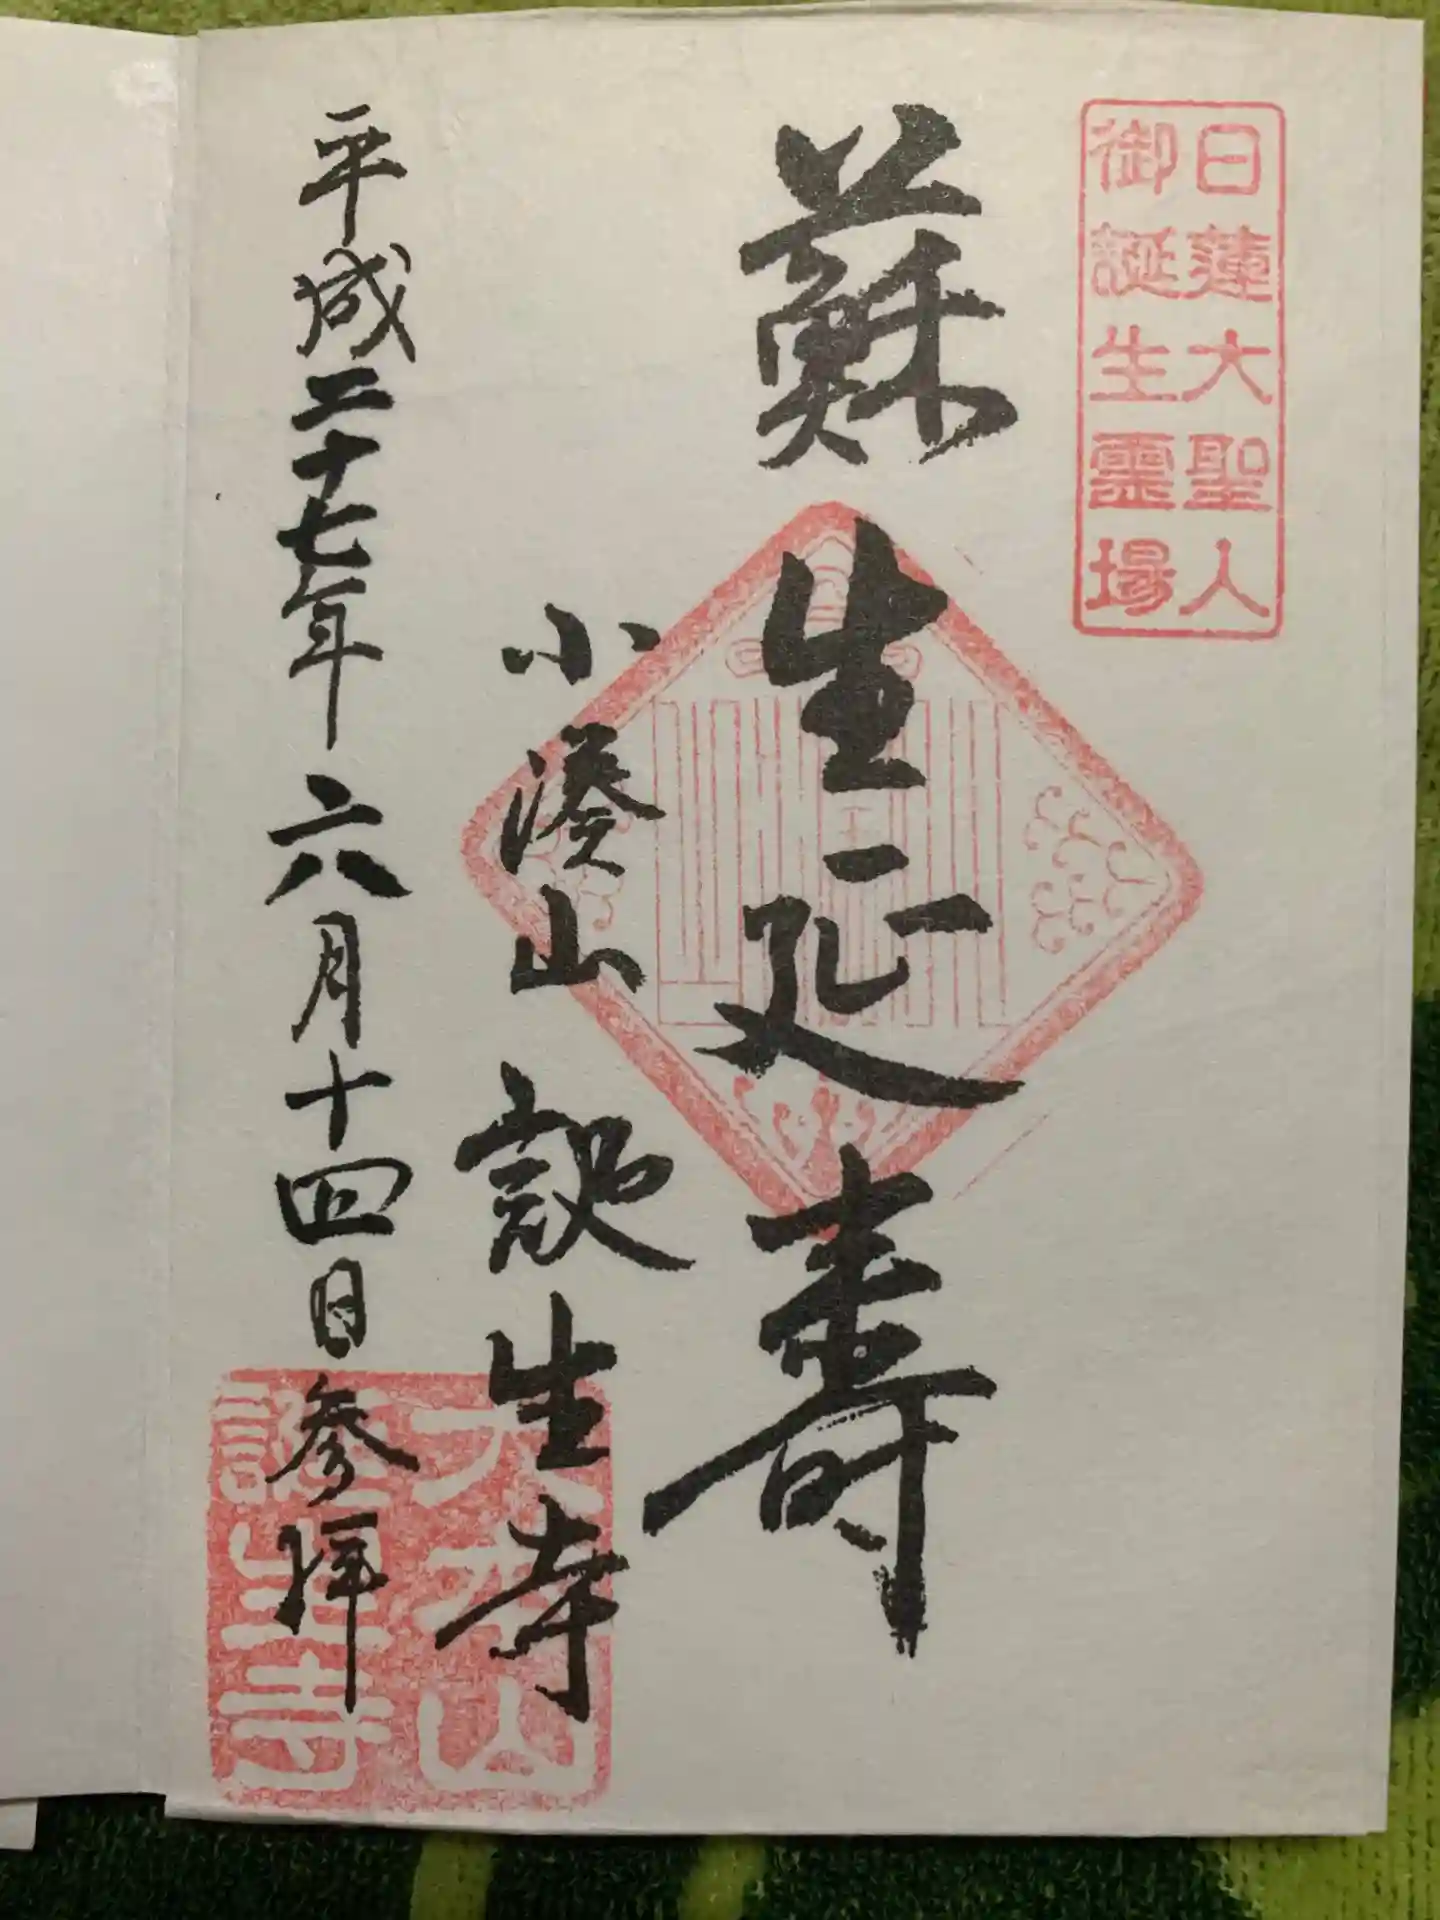 日蓮大聖人
御誕生霊場
蘇生延寿
小湊山 誕生寺
平成二十七年 六月十四日参拝
大本山
誕生寺